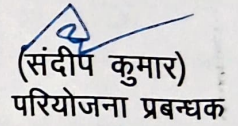 (संदीप कुमार)
परियोजना प्रबन्धक